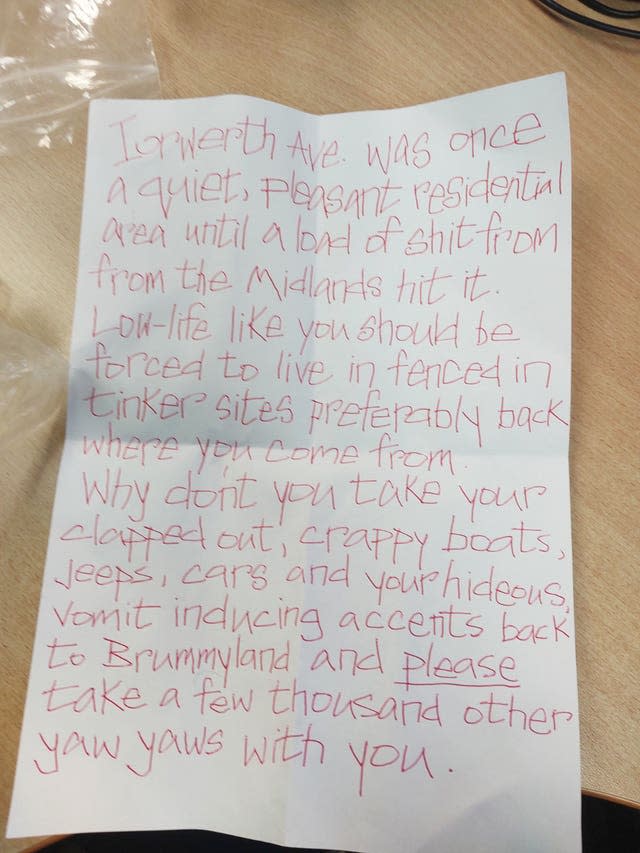 Iorwerth Ave. was once
a quiet, pleasant residential
area until a load of shit from
from the Midlands hit it.
Low-life like you should be
forced to live in fenced in
tinker sites preferably back
where you come from.
Why don't you take your
clapped out, crappy boats,
jeeps, cars and your hideous,
vomit inducing accents back
to Brummyland and please
take a few thousand other
yaw yaws with you.